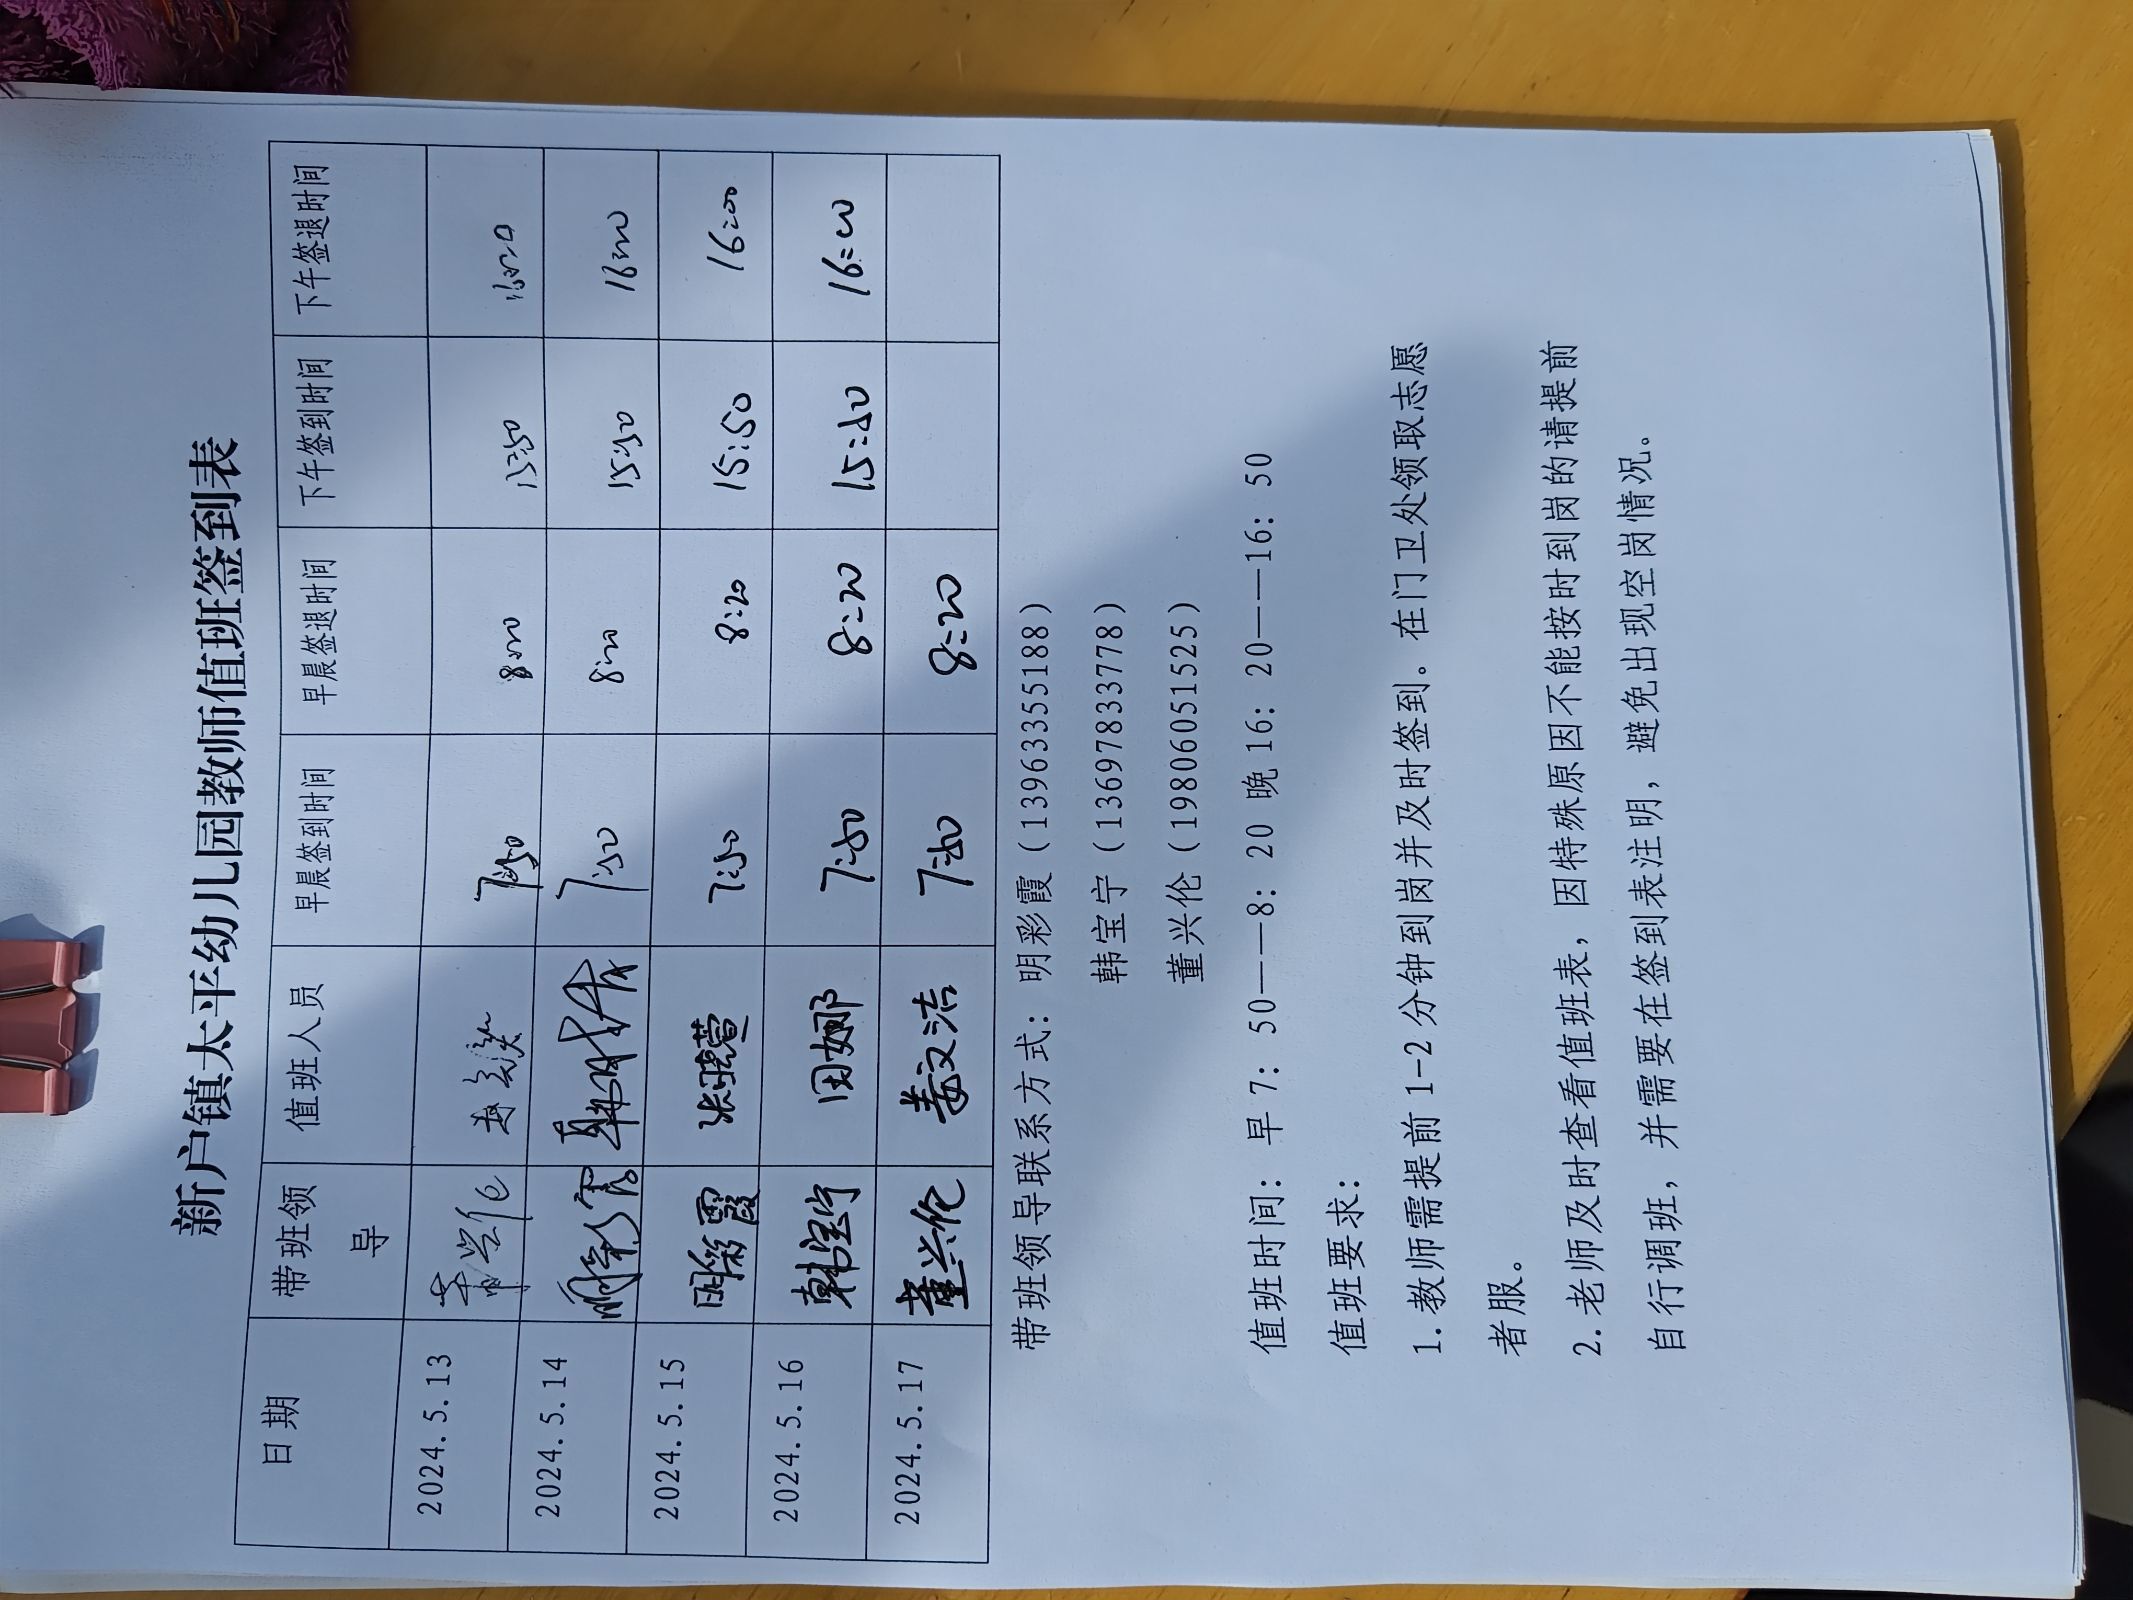 新户镇太平幼儿园教师值班签到表
日期 带班领导 值班人员 早晨签到时间 早晨签退时间 下午签到时间 下午签退时间
2024.5.13 董兴伦 7:50 8:20 15:50
2024.5.14 明彩霞 7:50 8:20 15:50
2024.5.15 明彩霞 张晓萱 7:50 8:20 15:50 16:00
2024.5.16 韩宝宁 田娜 7:50 8:20 15:50 16:00
2024.5.17 董兴伦 姜文洁 7:50 8:20
带班领导联系方式：明彩霞（13963355188）
韩宝宁（13697833778）
董兴伦（19806051525）
值班时间：早 7：50——8：20 晚 16：20——16：50
值班要求：
1.教师需提前 1-2 分钟到岗并及时签到。在门卫处领取志愿
者服。
2.老师及时查看值班表，因特殊原因不能按时到岗的请提前
自行调班，并需要在签到表注明，避免出现空岗情况。